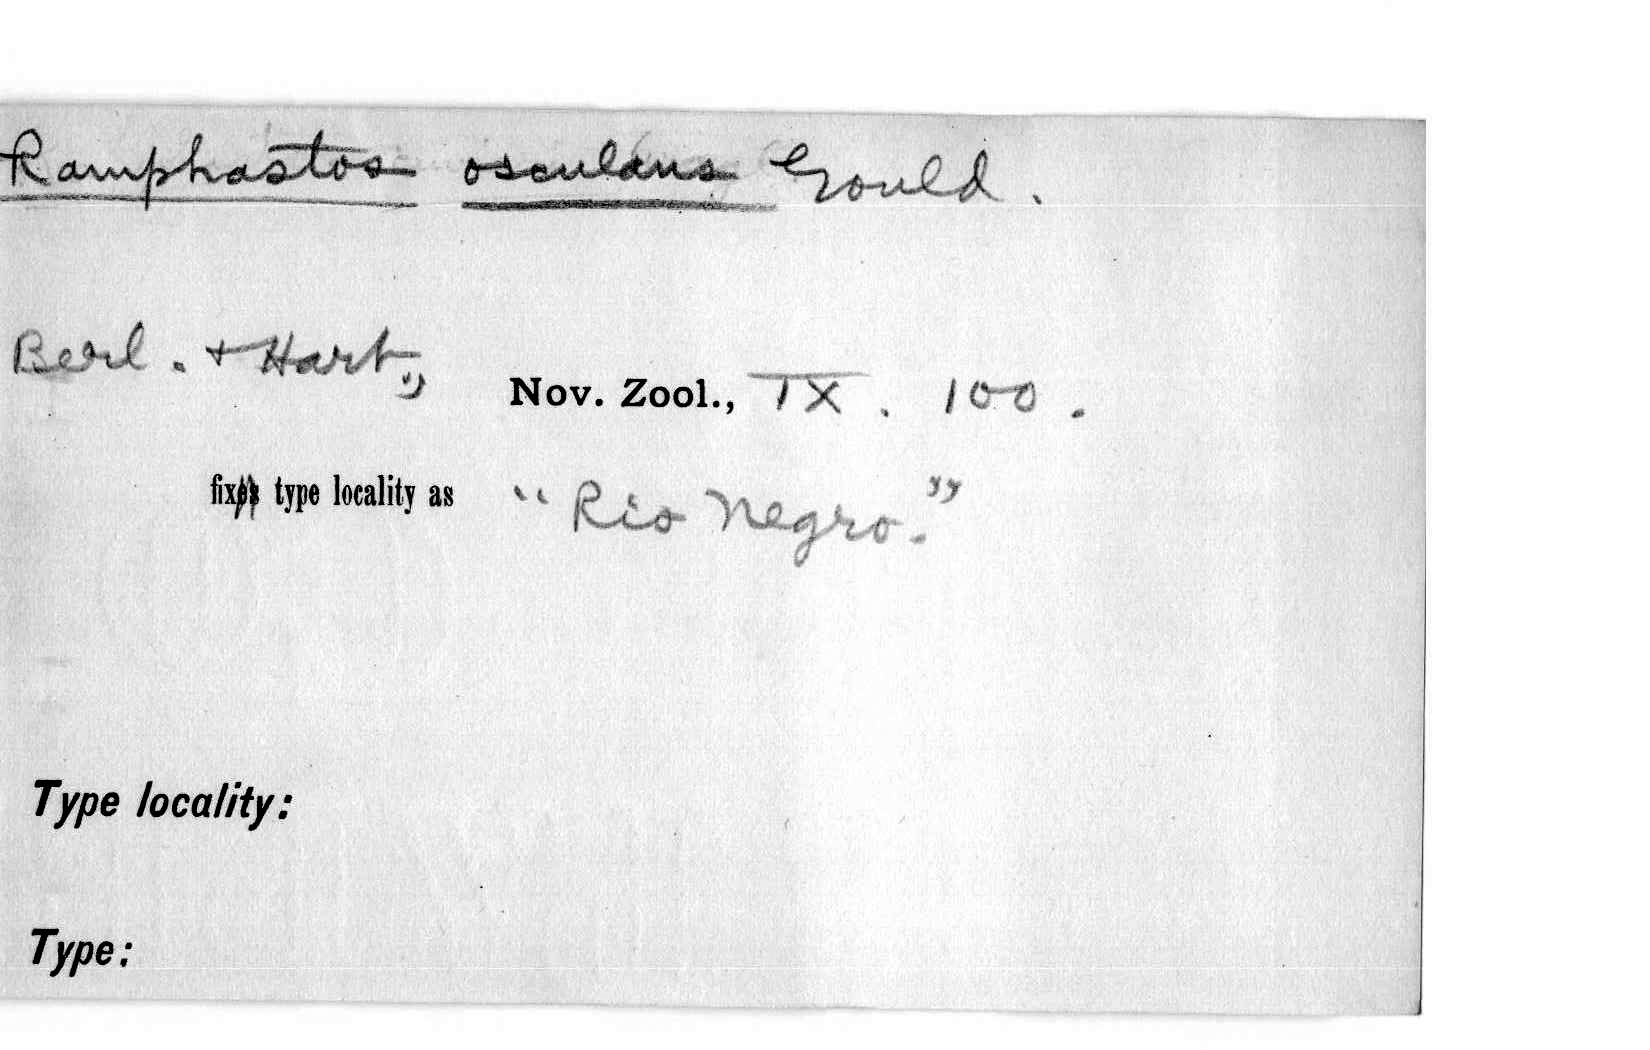 Ramphastos osculans Gould.
Berl. & Hart.,
Nov. Zool., IX. 100.
fix type locality as "Rio Negro."
Type locality:
Type: